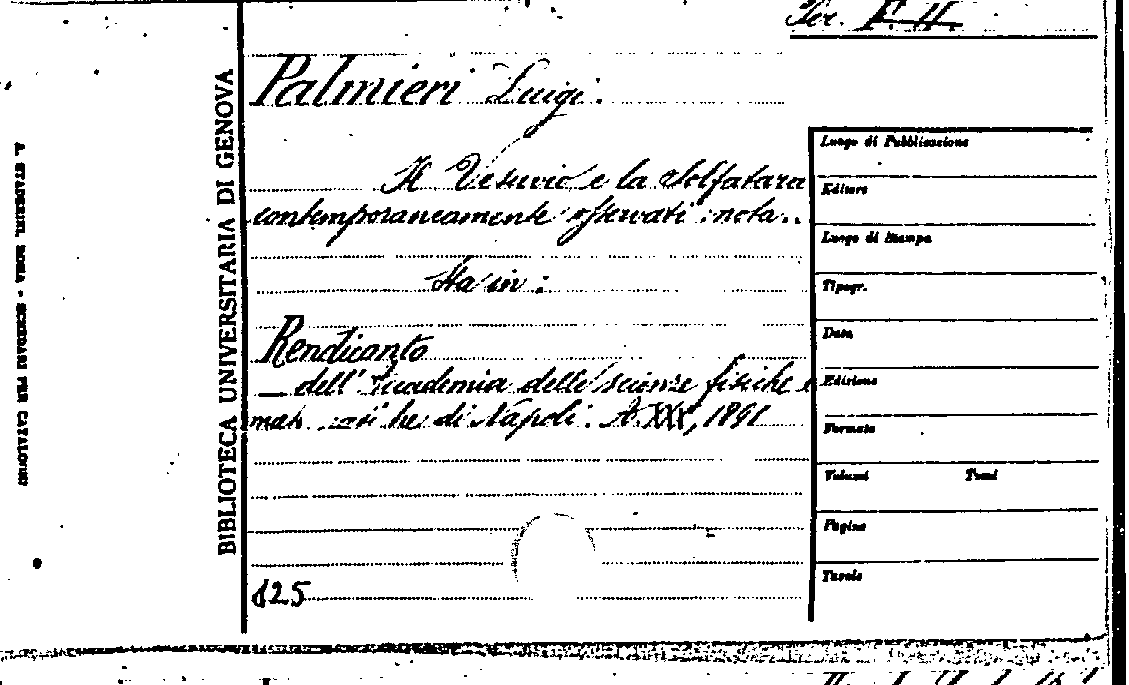 Ser. F. II.
Palmieri Luigi.
Il Vesuvio e la Solfatara
contemporaneamente osservati: nota..
Sta in:
Rendiconto
dell'Accademia delle scienze fisiche e
mat di Napoli. A. XXX, 1891
125
BIBLIOTECA UNIVERSITARIA DI GENOVA
A. STADERINI, ROMA - SCHEDARI PER CATALOGHI
Luogo di Pubblicazione
Editore
Luogo di Stampa
Tipogr.
Data
Edizione
Formato
Volumi Tomi
Pagine
Tavole